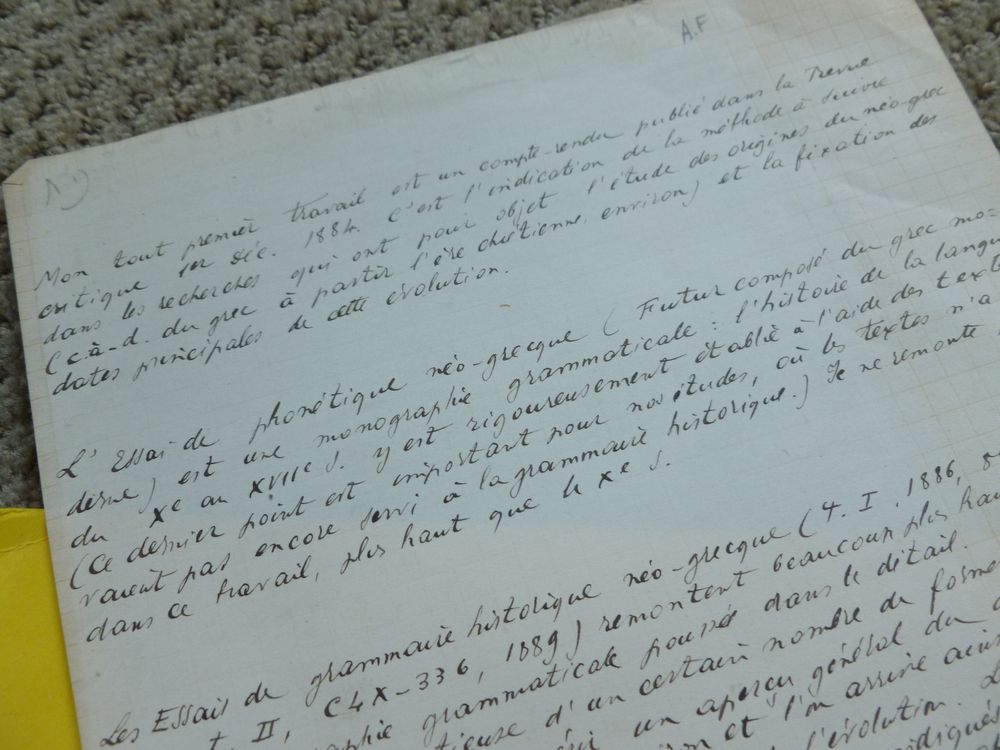 A.F
Mon tout premier travail est un compte-rendu publié dans la Revue
critique 1er Déc. 1884. C'est l'indication de la méthode à suivre
dans les recherches qui ont pour objet l'étude des origines du néo-grec
(c-à-d. du grec à partir l'ère chrétienne, environ) et la fixation des
dates principales de cette évolution.
L'Essai de phonétique néo-grecque (Futur composé du grec mo=
derne) est une monographie grammaticale : l'histoire de la
du Xe au XVIIe s. y est rigoureusement établie à l'aide des
(Ce dernier point est important pour nos études, où les textes n'a
vaient pas encore servi à la grammaire historique.) Je ne remonte
dans ce travail, plus haut que le Xe s.
Les Essais de grammaire historique néo-grecque (T. I, 1886,
t. II, C4X-336, 1889) remontent beaucoup plus
grammaticale poussée dans le détail.
d'un certain nombre de
un aperçu général du
et l'on arrive
l'évolution.